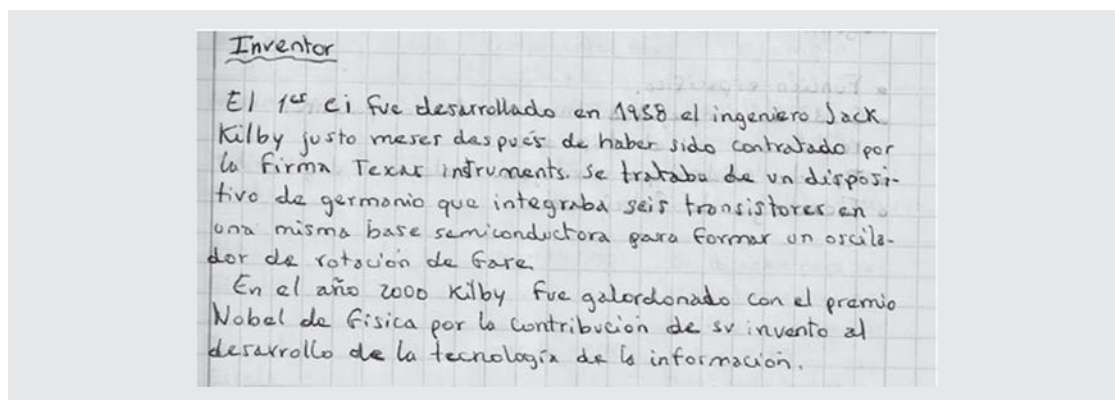 Inventor
El 1er ci fue desarrollado en 1958 el ingeniero Jack
Kilby justo meses después de haber sido contratado por
la firma Texas instruments. Se trataba de un disposi-
tivo de germanio que integraba seis transistores en
una misma base semiconductora para formar un oscila-
dor de rotación de fase.
En el año 2000 Kilby fue galordonado con el premio
Nobel de Física por la contribución de su invento al
desarrollo de la tecnología de la información.